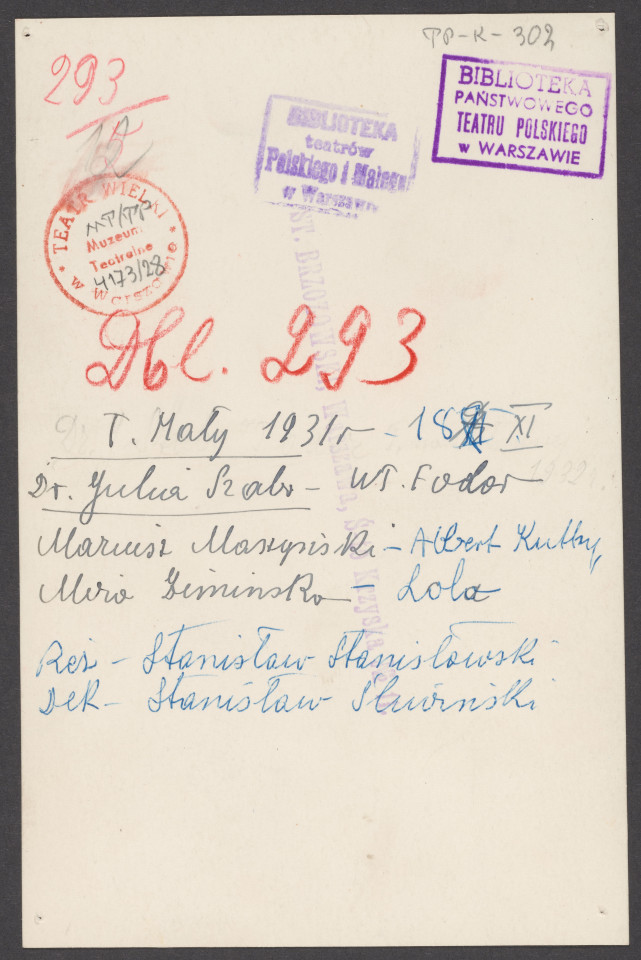 TP-K-302
293
12
BIBLIOTEKA
PAŃSTWOWEGO
TEATRU POLSKIEGO
w WARSZAWIE
BIBLIOTEKA
teatrów
Polskiego i Małego
w Warszawie
TEATR WIELKI
w Warszawie
MT/TP
Muzeum
Teatralne
4173/28
ST. BRZOZOWSKI,
Dbl. 293
T. Mały 1931r - 18 XI
Dr. Julia Szabo - Wł. Fodor
Mariusz Maszyński - Albert
Mira Zimińska - Lola
Reż - Stanisław Stanisławski
Dek - Stanisław Śliwiński